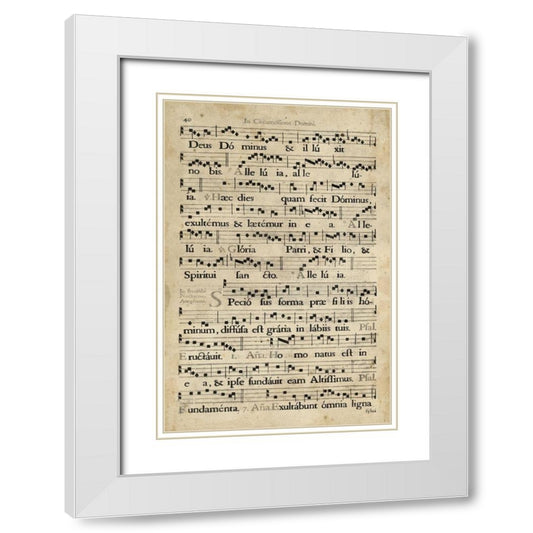 40 In Circumcisione Domini.
Deus Dó minus & il lú xit
no bis. Alle lú ia, al le lú
ia. ℣. Hæc dies quam fecit Dóminus,
exultémus & lætémur in e a. Alle
lú ia. ℣. Glória Patri, & Fi lio, &
Spiritui san cto. Alle lú ia.
Speció sus forma præ fi li is hó
minum, diffúsa est grátia in lábiis tuis. Psal.
Eructávit. 1. Aña. Ho mo natus est in
e a, & ipse fundávit eam Altíssimus. Psal.
Fundaménta. 7. Aña. Exultábunt ómnia ligna